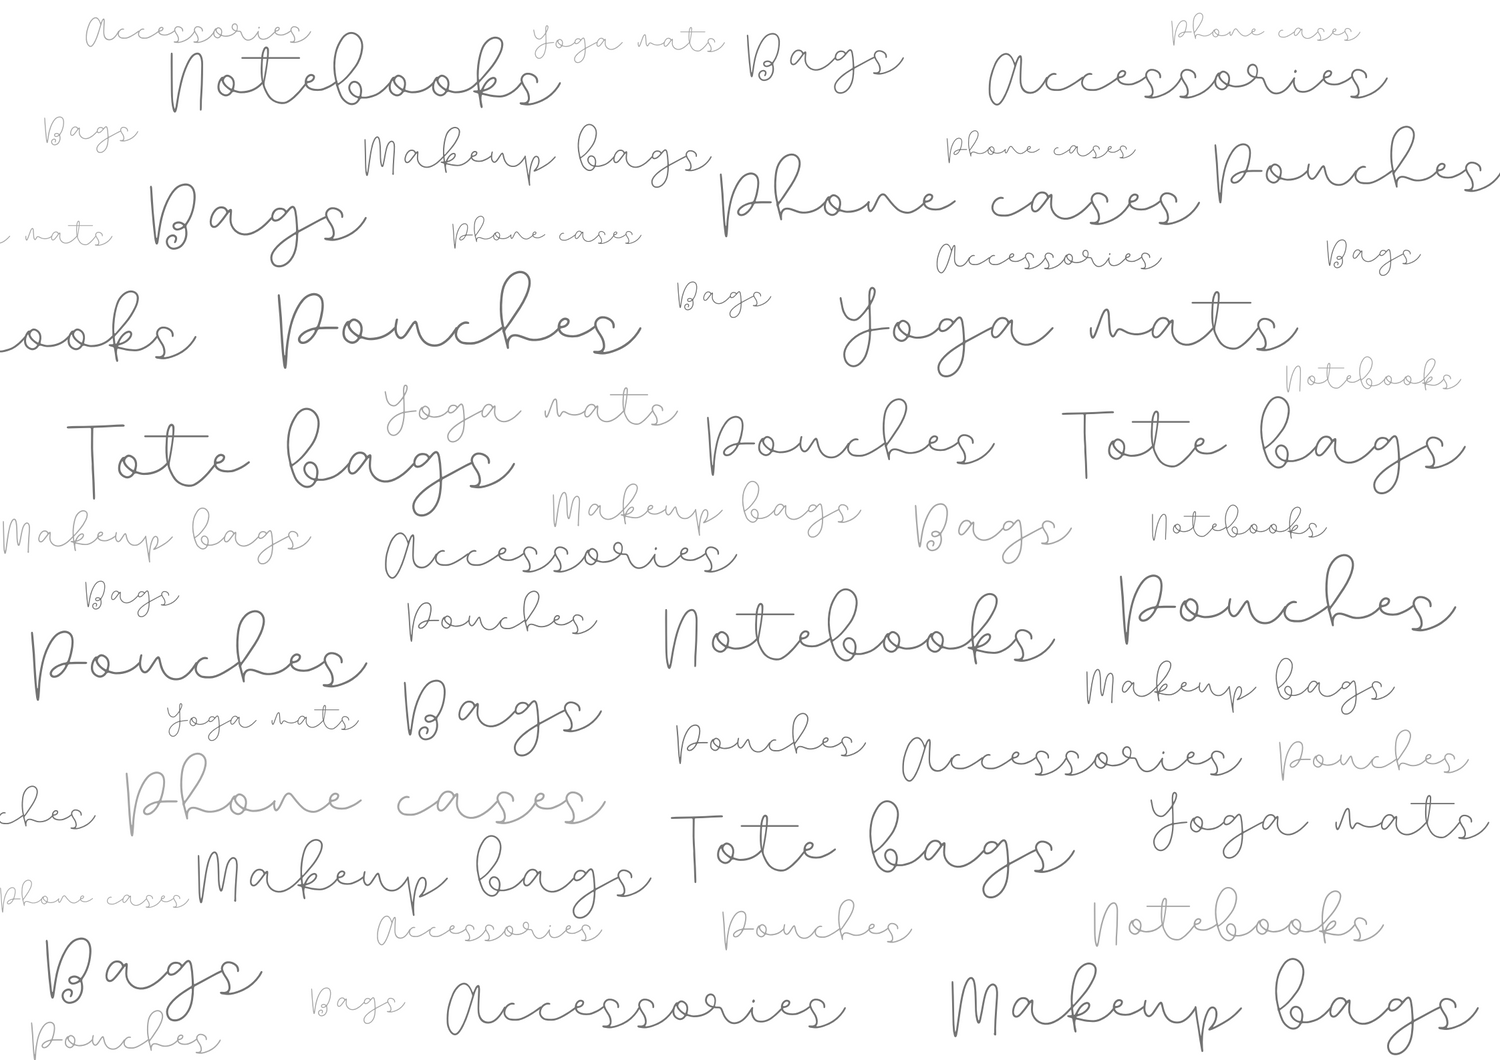 Accessories
Yoga mats
Phone cases
Notebooks
Bags
Accessories
Bags
Makeup bags
Phone cases
Pouches
Phone cases
Bags
mats
Phone cases
Accessories
Bags
Bags
ooks
Pouches
Yoga mats
Notebooks
Yoga mats
Tote bags
Pouches
Tote bags
Makeup bags
Makeup bags
Bags
Notebooks
Accessories
Bags
Pouches
Pouches
Notebooks
Pouches
Makeup bags
Yoga mats
Bags
Pouches
Accessories
Pouches
ches
Phone cases
Yoga mats
Tote bags
Makeup bags
Phone cases
Accessories
Pouches
Notebooks
Bags
Bags
Accessories
Makeup bags
Pouches